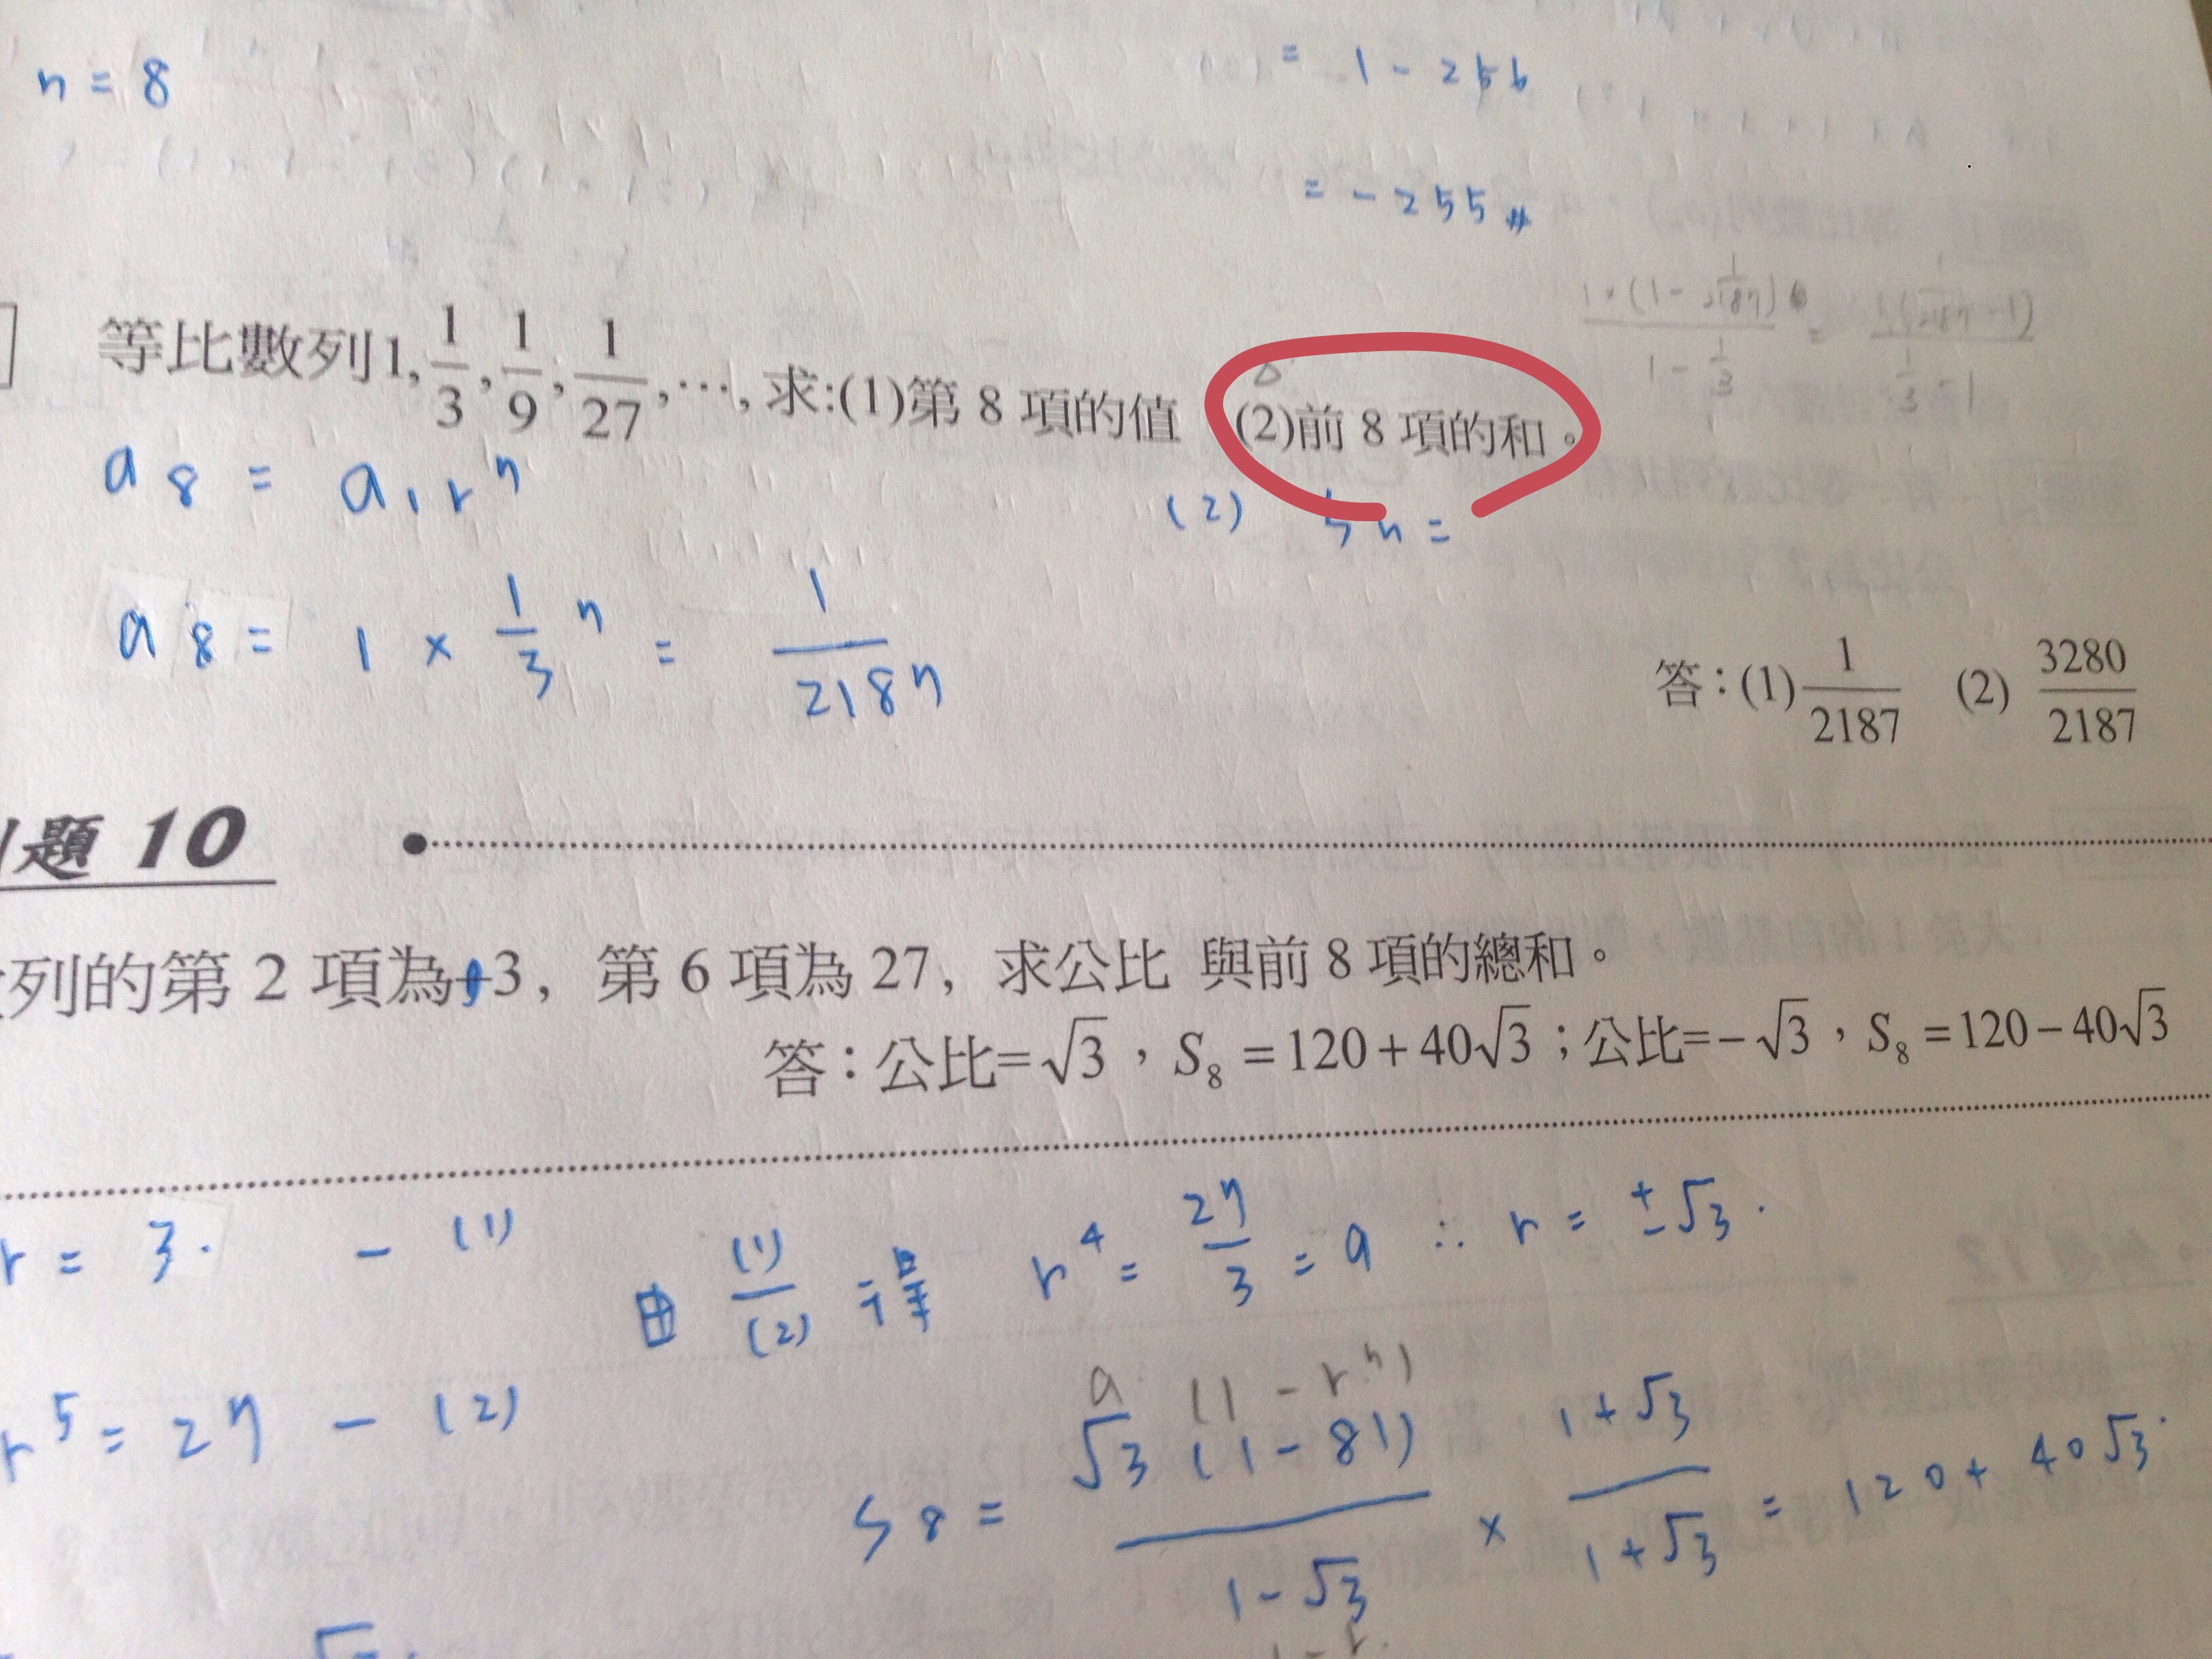 n = 8
= 1 - 256
= - 255 #
等比數列1, 1/3, 1/9, 1/27, ⋯, 求:(1)第 8 項的值 (2)前 8 項的和。
1×(1 - 1/2187) / (1 - 1/3) =
a8 = a1 r^7
(2) Sn =
a8 = 1 × 1/3^7 = 1/2187
答：(1) 1/2187 (2) 3280/2187
題 10
列的第 2 項為 3，第 6 項為 27，求公比 與前 8 項的總和。
答：公比=√3，S8 =120+40√3；公比=−√3，S8 =120−40√3
r = 3. - (1)
由 (1)/(2) 得 r^4 = 27/3 = 9 ∴ r = ±√3.
r^5 = 27 - (2)
a (1 - r^n)
S8 = √3 (1-81) / (1-√3) × (1+√3)/(1+√3) = 120 + 40√3